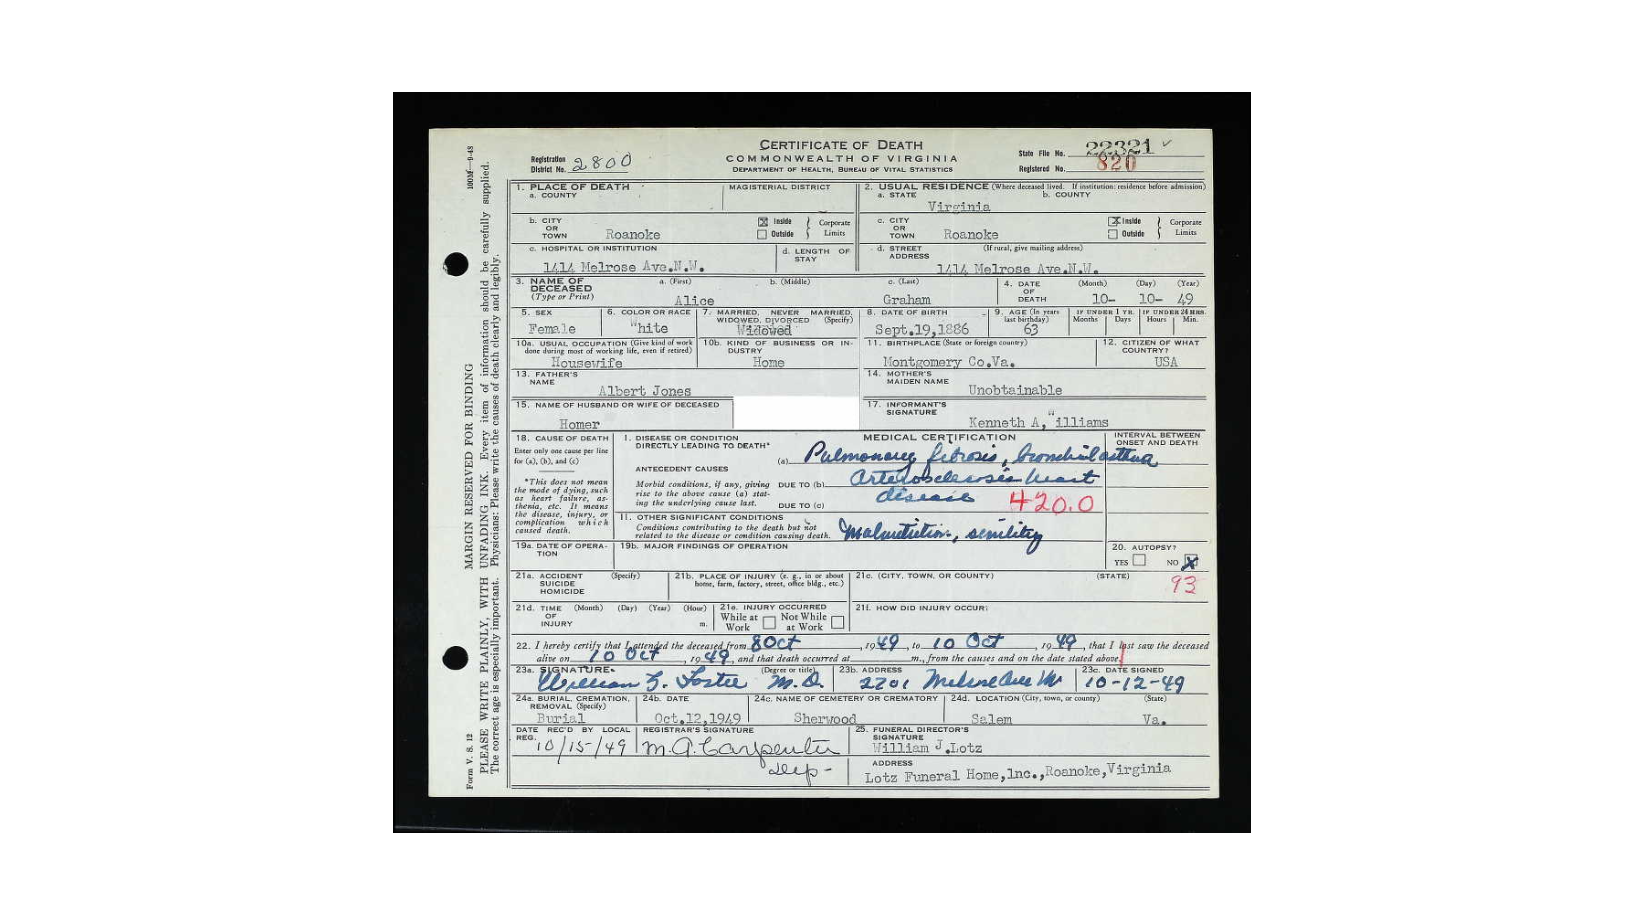 CERTIFICATE OF DEATH
COMMONWEALTH OF VIRGINIA
DEPARTMENT OF HEALTH, BUREAU OF VITAL STATISTICS
Registration District No. 2800
State File No. 22321
Registered No. 820
100M—9-48
MARGIN RESERVED FOR BINDING
PLEASE WRITE PLAINLY, WITH UNFADING INK. Every item of information should be carefully supplied.
The correct age is especially important. Physicians: Please write the causes of death clearly and legibly.
Form V. S. 12
1. PLACE OF DEATH
a. COUNTY
MAGISTERIAL DISTRICT
2. USUAL RESIDENCE (Where deceased lived. If institution: residence before admission)
a. STATE b. COUNTY
Virginia
b. CITY OR TOWN Roanoke
Inside Outside Corporate Limits
c. CITY OR TOWN Roanoke
Inside Outside Corporate Limits
c. HOSPITAL OR INSTITUTION
1414 Melrose Ave.N.W.
d. LENGTH OF STAY
d. STREET ADDRESS (If rural, give mailing address)
1414 Melrose Ave.N.W.
3. NAME OF DECEASED (Type or Print)
a. (First) b. (Middle) c. (Last)
Alice Graham
4. DATE OF DEATH (Month) (Day) (Year)
10- 10- 49
5. SEX
Female
6. COLOR OR RACE
White
7. MARRIED, NEVER MARRIED, WIDOWED, DIVORCED (Specify)
Widowed
8. DATE OF BIRTH
Sept.19,1886
9. AGE (In years last birthday)
63
IF UNDER 1 YR. Months Days
IF UNDER 24 HRS. Hours Min.
10a. USUAL OCCUPATION (Give kind of work done during most of working life, even if retired)
Housewife
10b. KIND OF BUSINESS OR INDUSTRY
Home
11. BIRTHPLACE (State or foreign country)
Montgomery Co.Va.
12. CITIZEN OF WHAT COUNTRY?
USA
13. FATHER'S NAME
Albert Jones
14. MOTHER'S MAIDEN NAME
Unobtainable
15. NAME OF HUSBAND OR WIFE OF DECEASED
Homer
17. INFORMANT'S SIGNATURE
Kenneth A. Williams
18. CAUSE OF DEATH
Enter only one cause per line for (a), (b), and (c)
*This does not mean the mode of dying, such as heart failure, asthenia, etc. It means the disease, injury, or complication which caused death.
MEDICAL CERTIFICATION
INTERVAL BETWEEN ONSET AND DEATH
I. DISEASE OR CONDITION DIRECTLY LEADING TO DEATH*
(a) Pulmonary fibrosis, bronchial asthma
ANTECEDENT CAUSES
Morbid conditions, if any, giving rise to the above cause (a) stating the underlying cause last.
DUE TO (b) Arteriosclerosis heart
disease
DUE TO (c)
420.0
II. OTHER SIGNIFICANT CONDITIONS
Conditions contributing to the death but not related to the disease or condition causing death.
Malnutrition, senility
19a. DATE OF OPERATION
19b. MAJOR FINDINGS OF OPERATION
20. AUTOPSY?
YES NO X
93
21a. ACCIDENT SUICIDE HOMICIDE (Specify)
21b. PLACE OF INJURY (e. g., in or about home, farm, factory, street, office bldg., etc.)
21c. (CITY, TOWN, OR COUNTY) (STATE)
21d. TIME OF INJURY (Month) (Day) (Year) (Hour) m.
21e. INJURY OCCURRED
While at Work Not While at Work
21f. HOW DID INJURY OCCUR?
22. I hereby certify that I attended the deceased from 8 Oct, 1949, to 10 Oct, 1949, that I last saw the deceased
alive on 10 Oct, 1949, and that death occurred at m., from the causes and on the date stated above
23a. SIGNATURE (Degree or title)
William M.D.
23b. ADDRESS
2201 Melrose Ave
23c. DATE SIGNED
10-12-49
24a. BURIAL, CREMATION, REMOVAL (Specify)
Burial
24b. DATE
Oct.12,1949
24c. NAME OF CEMETERY OR CREMATORY
Sherwood
24d. LOCATION (City, town, or county) (State)
Salem Va.
DATE REC'D BY LOCAL REG.
10/15/49
REGISTRAR'S SIGNATURE
M.A. Carpenter
Dep-
25. FUNERAL DIRECTOR'S SIGNATURE
William J.Lotz
ADDRESS
Lotz Funeral Home,Inc.,Roanoke,Virginia